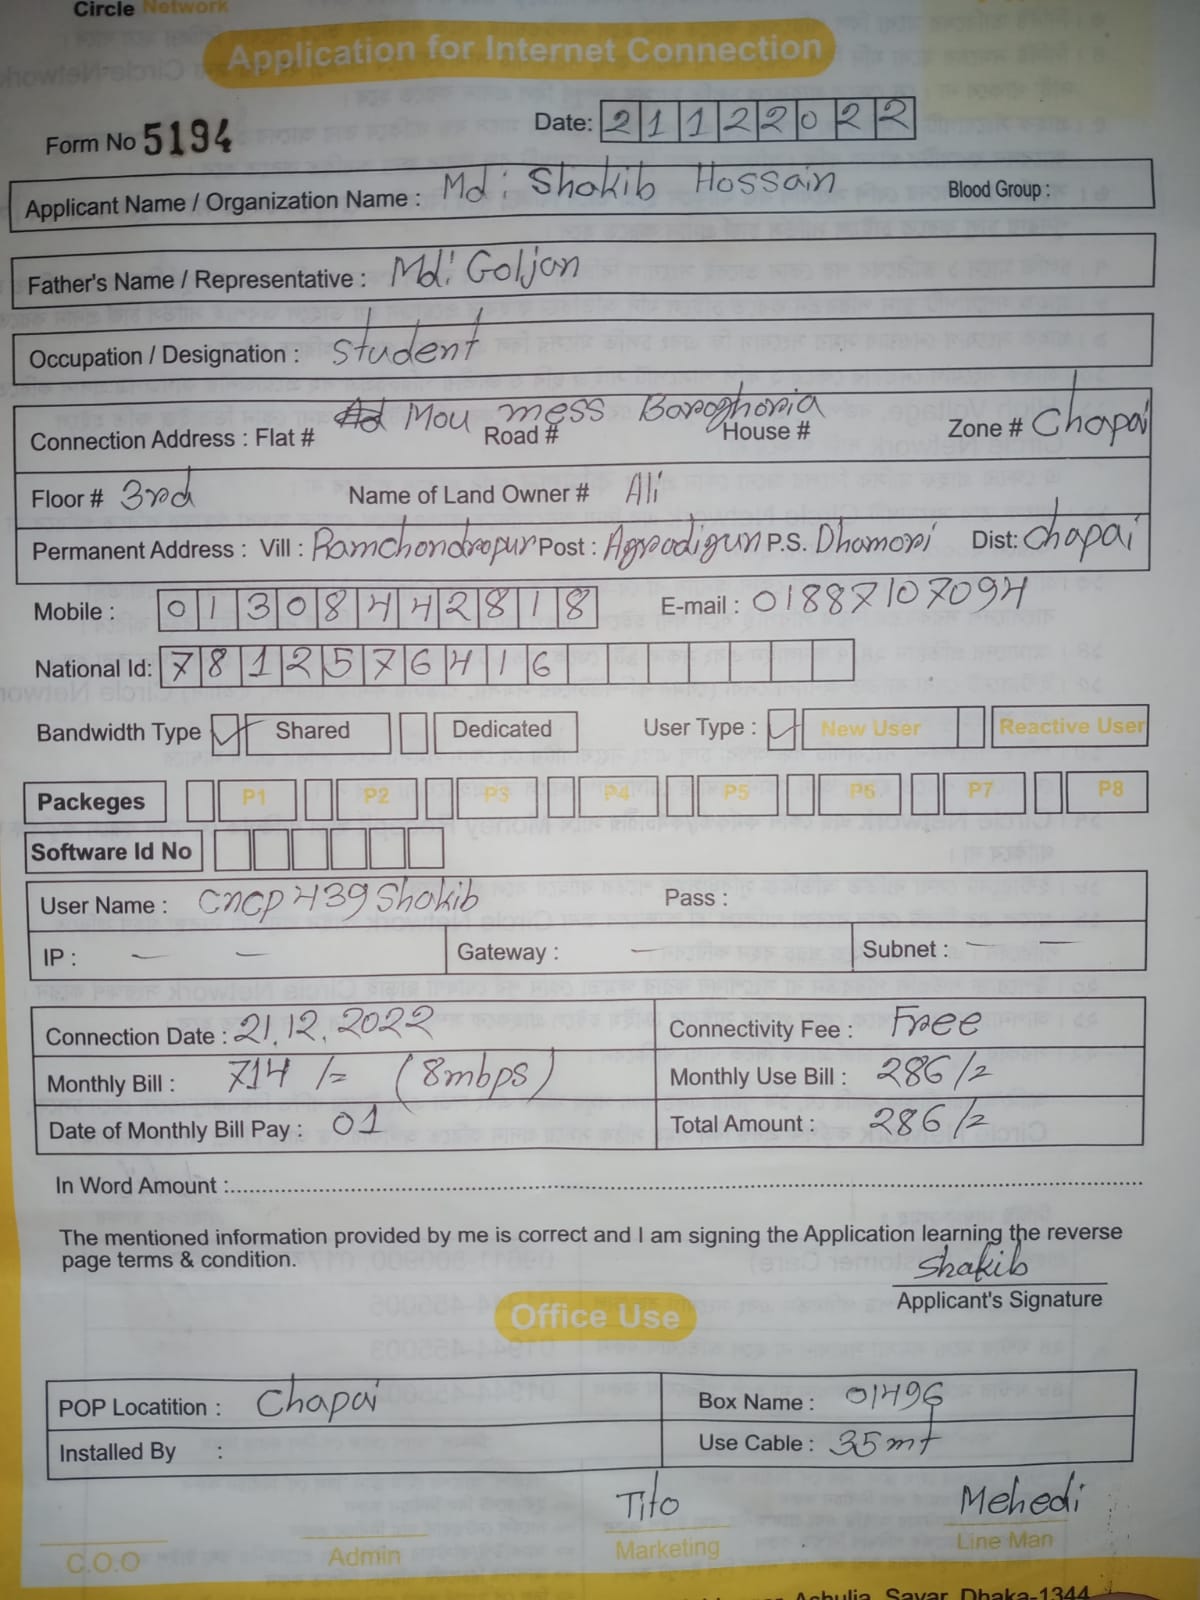 Circle Network
Application for Internet Connection
Form No 5194 Date: 21122022
Applicant Name / Organization Name : Md: Shakib Hossain Blood Group :
Father's Name / Representative : Md: Goljan
Occupation / Designation : Student
Connection Address : Flat # Mou mess Road # Baroghoria House # Zone # Chapai
Floor # 3rd Name of Land Owner # Ali
Permanent Address : Vill : Ramchondropur Post : P.S. Dhamori Dist: Chapai
Mobile : 01308442818 E-mail : 01887107094
National Id: 7812576416
Bandwidth Type Shared Dedicated User Type : New User Reactive User
Packeges P1 P2 P3 P4 P5 P6 P7 P8
Software Id No
User Name : cncp439Shakib Pass :
IP : — — Gateway : — Subnet : — —
Connection Date : 21.12.2022 Connectivity Fee : Free
Monthly Bill : 714 /= (8mbps) Monthly Use Bill : 286/=
Date of Monthly Bill Pay : 01 Total Amount : 286/=
In Word Amount :
The mentioned information provided by me is correct and I am signing the Application learning the reverse
page terms & condition.
Shakib
Applicant's Signature
Office Use
POP Locatition : Chapai Box Name : 01496
Installed By : Use Cable : 35mt
Tito Mehedi
C.O.O Admin Marketing Line Man
Ashulia, Savar, Dhaka-1344